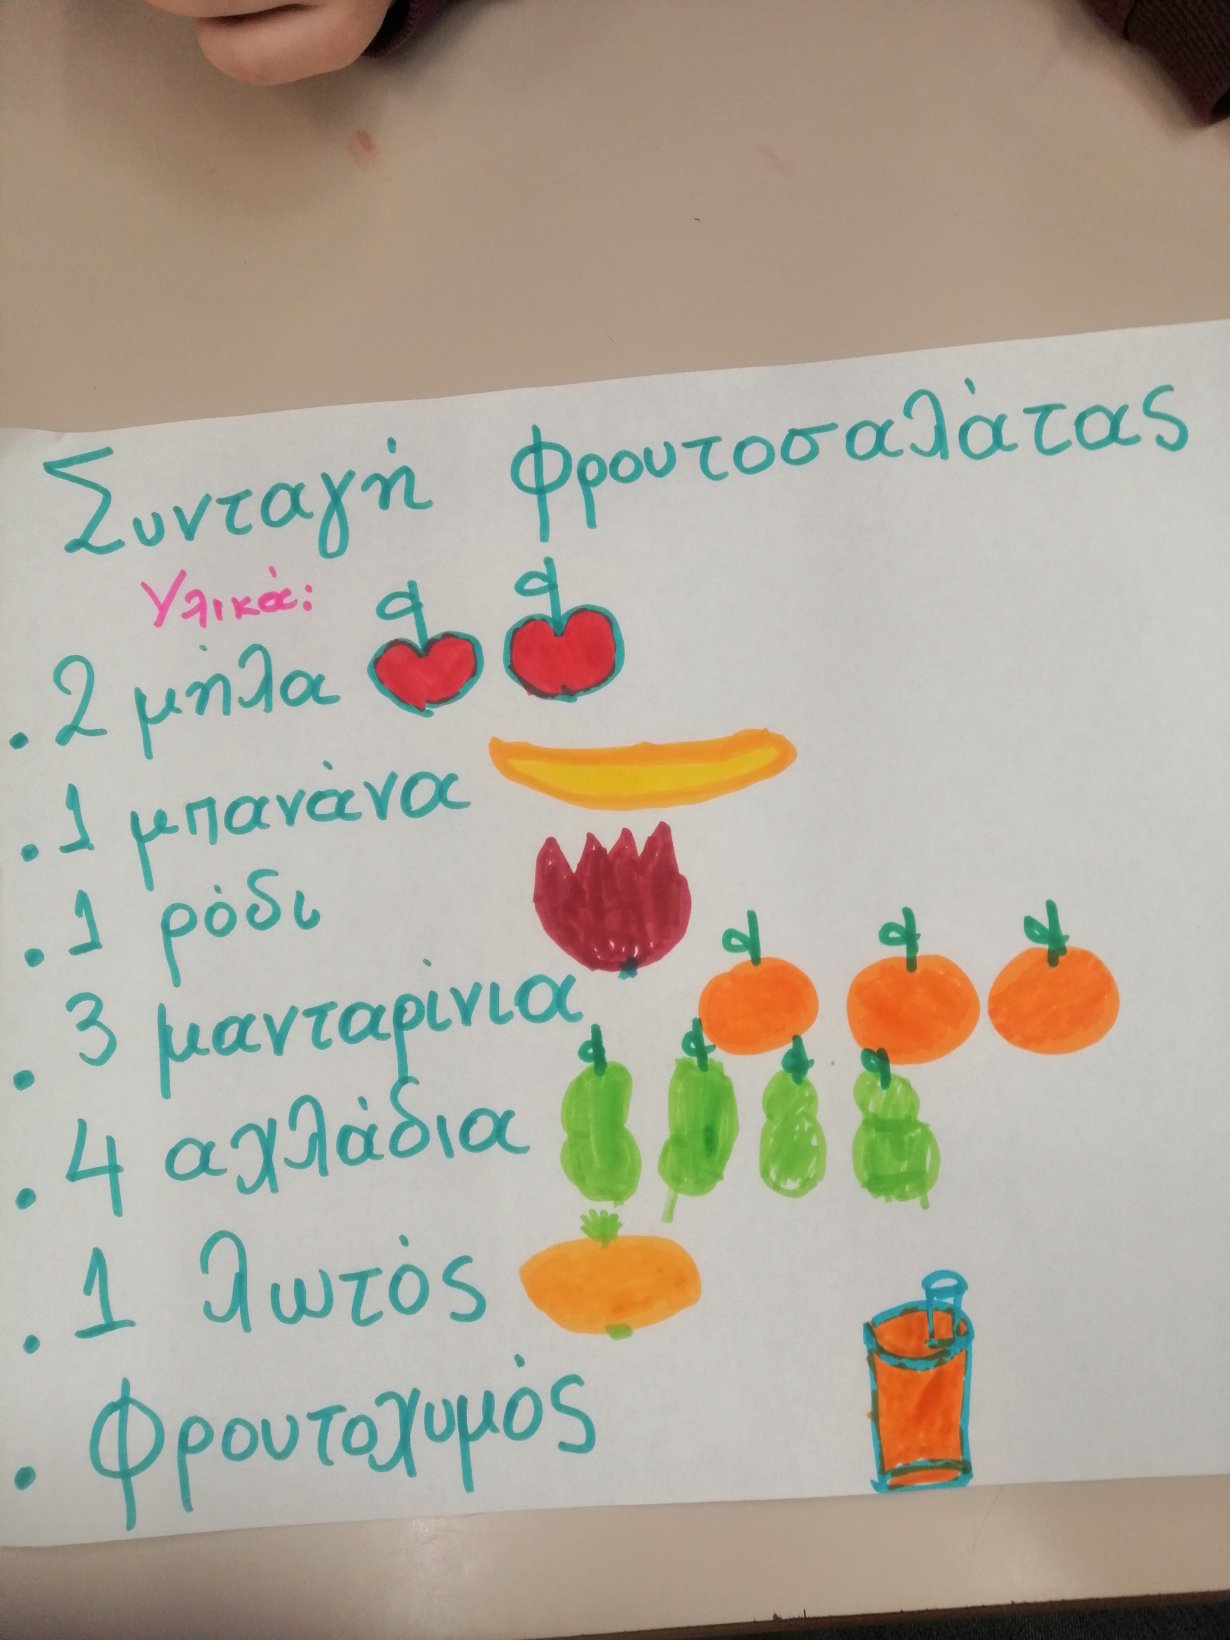 Συνταγή Φρουτοσαλάτας
Υλικά:
. 2 μήλα
. 1 μπανάνα
. 1 ρόδι
. 3 μανταρίνια
. 4 αχλάδια
. 1 λωτός
. Φρουτοχυμός